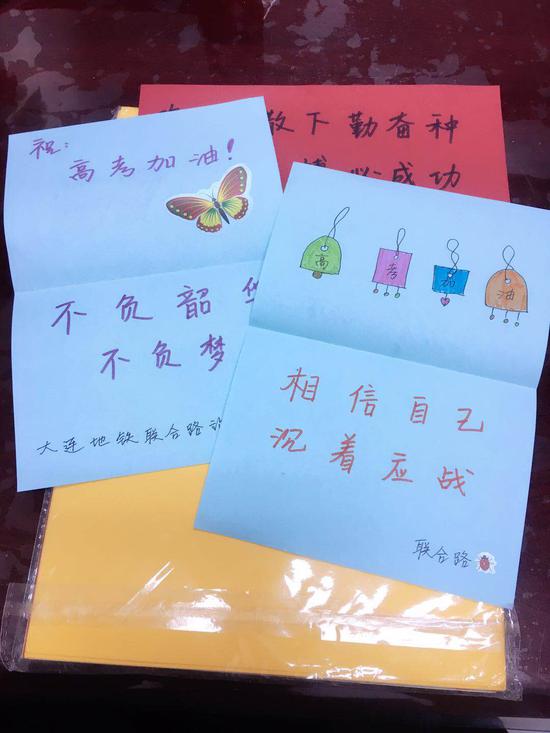 敢下勤奋种
必成功
祝：
高考加油！
不负韶
不负梦
大连地铁联合路
高考加油
相信自己
沉着应战
联合路